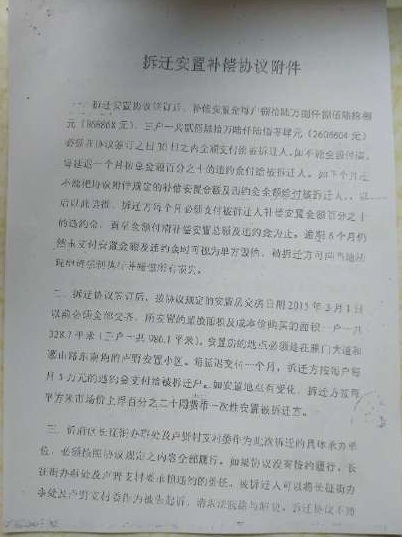 拆迁安置补偿协议附件
一、拆迁安置协议签订后，补偿安置金每户捌拾陆万捌仟捌佰陆拾捌
元（868868元），三户一共贰佰陆拾万陆仟陆佰零肆元（2606604元）
必须在协议签订之日30日之内全额支付给被拆迁人。如不能全额付清，
每延迟一个月按总金额百分之十的违约金付给被拆迁人。如下个月还
不能把协议附件规定的补偿安置金额及违约金全额给付被拆迁人，
后以此类推，拆迁方每个月必须支付被拆迁人补偿安置金额百分之十
的违约金，直至全额付清补偿安置总额及违约金为止。逾期6个月仍
然未支付安置金额及违约金时可视为单方毁约，被拆迁方可向当地法
院申请强制执行并赔偿所有损失。
二、拆迁协议签订后，按协议规定的安置总交房日期2015年3月1日
以前必须全部交齐，所安置的置换面积及成本价购买的面积，一户一共
328.7平米（三户一共986.1平米）。安置房的地点必须是在雁门大道和
东南角的卢野安置小区。每延迟交付一个月，拆迁方按每户每
月5万元的违约金支付给被拆迁户。如安置地点有变化，拆迁方应每
平方米市场价上浮百分之二十同货币一次性安置被拆迁方。
三、区长征街办事处及卢野村支村委作为此次拆迁的具体承办单
位，必须按照协议规定之内容全部履行。如果协议没有按约履行，长
征街办事处及卢野支村委承担违约的责任，被拆迁人可以将长征街办
事处及卢野支村委作为被告起诉，请求法院给与解决。拆迁协议不